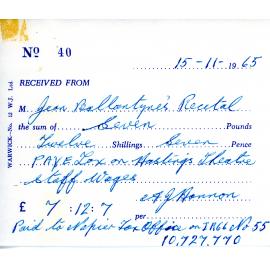 No 40
15-11-1965
RECEIVED FROM
M Jean Ballantyne's Recital
the sum of Seven Pounds
Twelve Shillings Seven Pence
P.A.Y.E Tax on Hastings Theatre
Staff Wages
£ 7 : 12 : 7
per
Paid to Napier Tax Office on IR66 No 55
10,727,770
WARWICK—No. 12 W.J. Ltd.